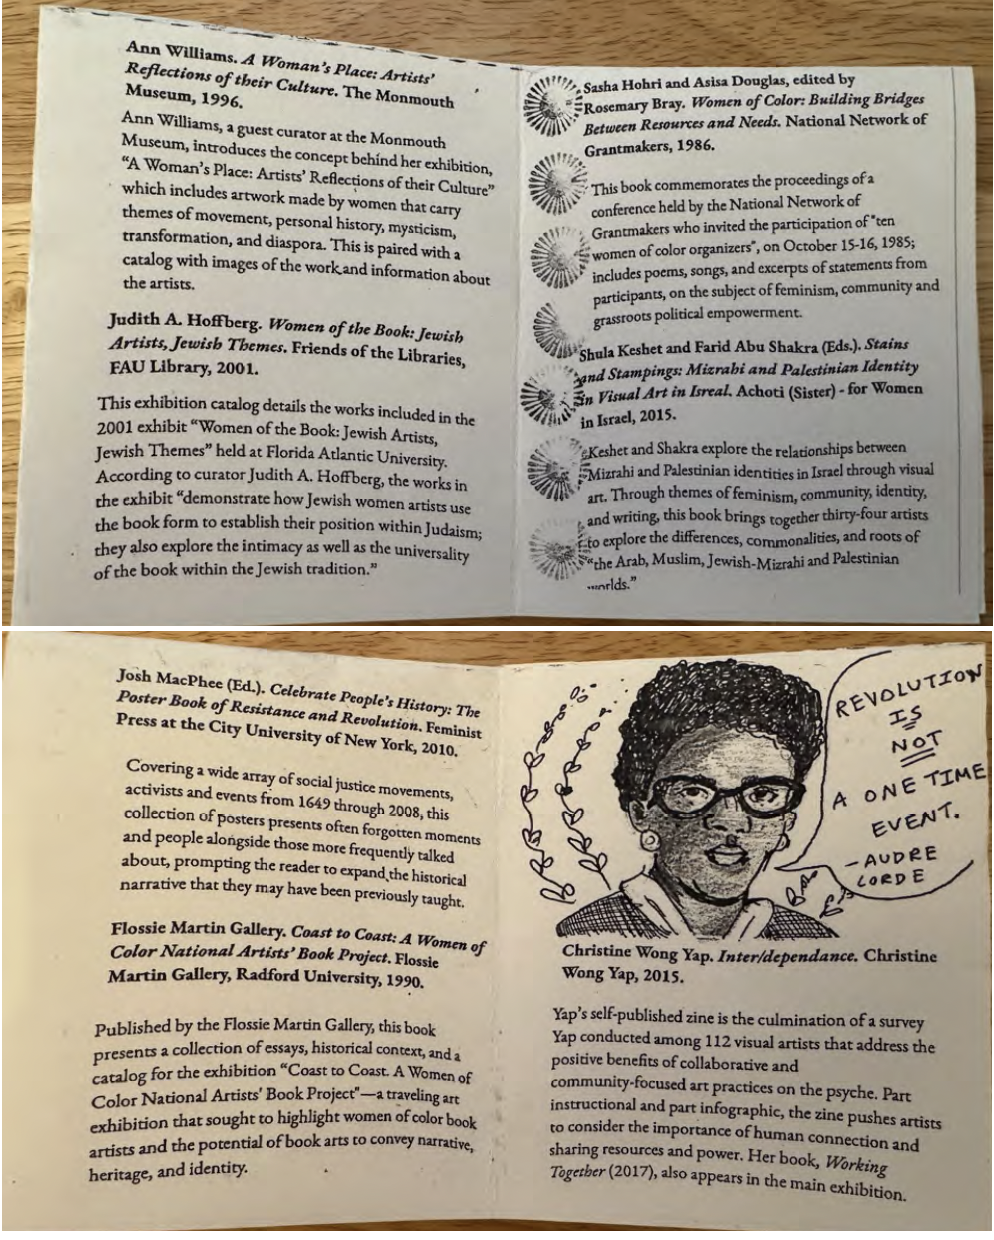 Ann Williams. A Woman's Place: Artists'
Reflections of their Culture. The Monmouth
Museum, 1996.
Ann Williams, a guest curator at the Monmouth
Museum, introduces the concept behind her exhibition,
"A Woman's Place: Artists' Reflections of their Culture"
which includes artwork made by women that carry
themes of movement, personal history, mysticism,
transformation, and diaspora. This is paired with a
catalog with images of the work and information about
the artists.
Judith A. Hoffberg. Women of the Book: Jewish
Artists, Jewish Themes. Friends of the Libraries,
FAU Library, 2001.
This exhibition catalog details the works included in the
2001 exhibit "Women of the Book: Jewish Artists,
Jewish Themes" held at Florida Atlantic University.
According to curator Judith A. Hoffberg, the works in
the exhibit "demonstrate how Jewish women artists use
the book form to establish their position within Judaism;
they also explore the intimacy as well as the universality
of the book within the Jewish tradition."
Sasha Hohri and Asisa Douglas, edited by
Rosemary Bray. Women of Color: Building Bridges
Between Resources and Needs. National Network of
Grantmakers, 1986.
This book commemorates the proceedings of a
conference held by the National Network of
Grantmakers who invited the participation of "ten
women of color organizers", on October 15-16, 1985;
includes poems, songs, and excerpts of statements from
participants, on the subject of feminism, community and
grassroots political empowerment.
Shula Keshet and Farid Abu Shakra (Eds.). Stains
and Stampings: Mizrahi and Palestinian Identity
in Visual Art in Isreal. Achoti (Sister) - for Women
in Israel, 2015.
Keshet and Shakra explore the relationships between
Mizrahi and Palestinian identities in Israel through visual
art. Through themes of feminism, community, identity,
and writing, this book brings together thirty-four artists
to explore the differences, commonalities, and roots of
"the Arab, Muslim, Jewish-Mizrahi and Palestinian
worlds."
Josh MacPhee (Ed.). Celebrate People's History: The
Poster Book of Resistance and Revolution. Feminist
Press at the City University of New York, 2010.
Covering a wide array of social justice movements,
activists and events from 1649 through 2008, this
collection of posters presents often forgotten moments
and people alongside those more frequently talked
about, prompting the reader to expand the historical
narrative that they may have been previously taught.
Flossie Martin Gallery. Coast to Coast: A Women of
Color National Artists' Book Project. Flossie
Martin Gallery, Radford University, 1990.
Published by the Flossie Martin Gallery, this book
presents a collection of essays, historical context, and a
catalog for the exhibition "Coast to Coast: A Women of
Color National Artists' Book Project"—a traveling art
exhibition that sought to highlight women of color book
artists and the potential of book arts to convey narrative,
heritage, and identity.
REVOLUTION
IS
NOT
A ONE TIME
EVENT.
-AUDRE
LORDE
Christine Wong Yap. Inter/dependance. Christine
Wong Yap, 2015.
Yap's self-published zine is the culmination of a survey
Yap conducted among 112 visual artists that address the
positive benefits of collaborative and
community-focused art practices on the psyche. Part
instructional and part infographic, the zine pushes artists
to consider the importance of human connection and
sharing resources and power. Her book, Working
Together (2017), also appears in the main exhibition.